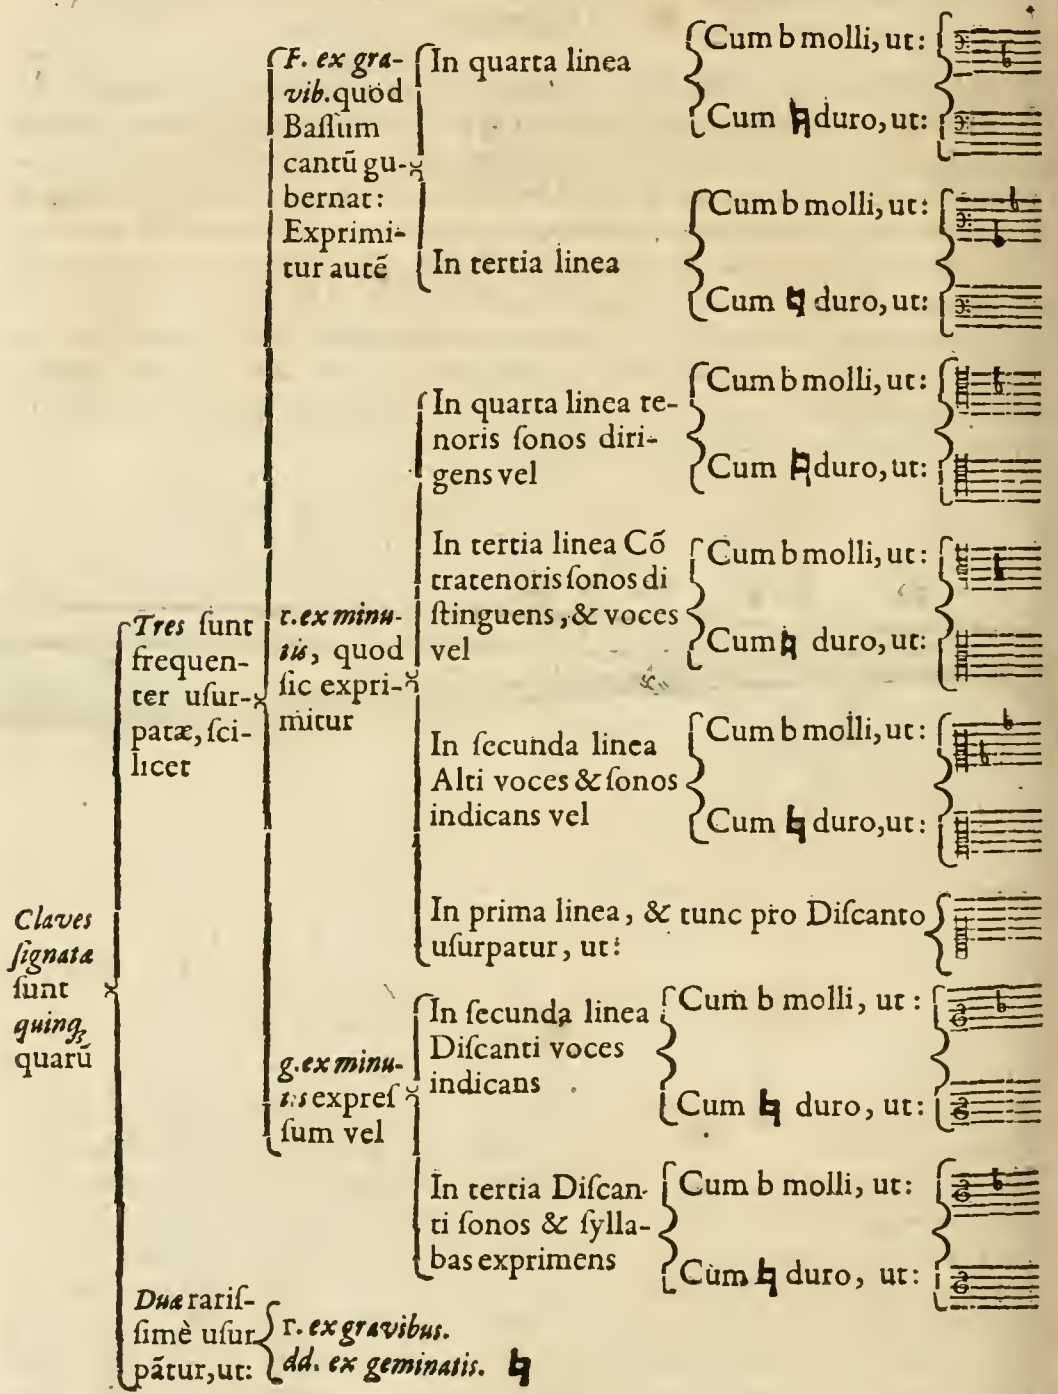 Claves
ſignatæ
ſunt
quinq;
quarũ
Tres ſunt
frequen-
ter uſur-
patæ, ſci-
licet
F. ex gra-
vib. quòd
Baſſum
cantũ gu-
bernat:
Exprimi-
tur autẽ
In quarta linea
Cum b molli, ut:
Cum ♮ duro, ut:
In tertia linea
Cum b molli, ut:
Cum ♮ duro, ut:
c. ex minu-
tis, quod
ſic expri-
mitur
In quarta linea te-
noris ſonos diri-
gens vel
Cum b molli, ut:
Cum ♮ duro, ut:
In tertia linea Cõ
tratenoris ſonos di
ſtinguens, & voces
vel
Cum b molli, ut:
Cum ♮ duro, ut:
In ſecunda linea
Alti voces & ſonos
indicans vel
Cum b molli, ut:
Cum ♮ duro, ut:
In prima linea, & tunc pro Diſcanto
uſurpatur, ut:
g. ex minu-
tis expreſ
ſum vel
In ſecunda linea
Diſcanti voces
indicans
Cum b molli, ut:
Cum ♮ duro, ut:
In tertia Diſcan-
ti ſonos & ſylla-
bas exprimens
Cum b molli, ut:
Cùm ♮ duro, ut:
Duæ rariſ-
ſimè uſur
pãtur, ut:
Γ. ex gravibus.
dd. ex geminatis. ♮